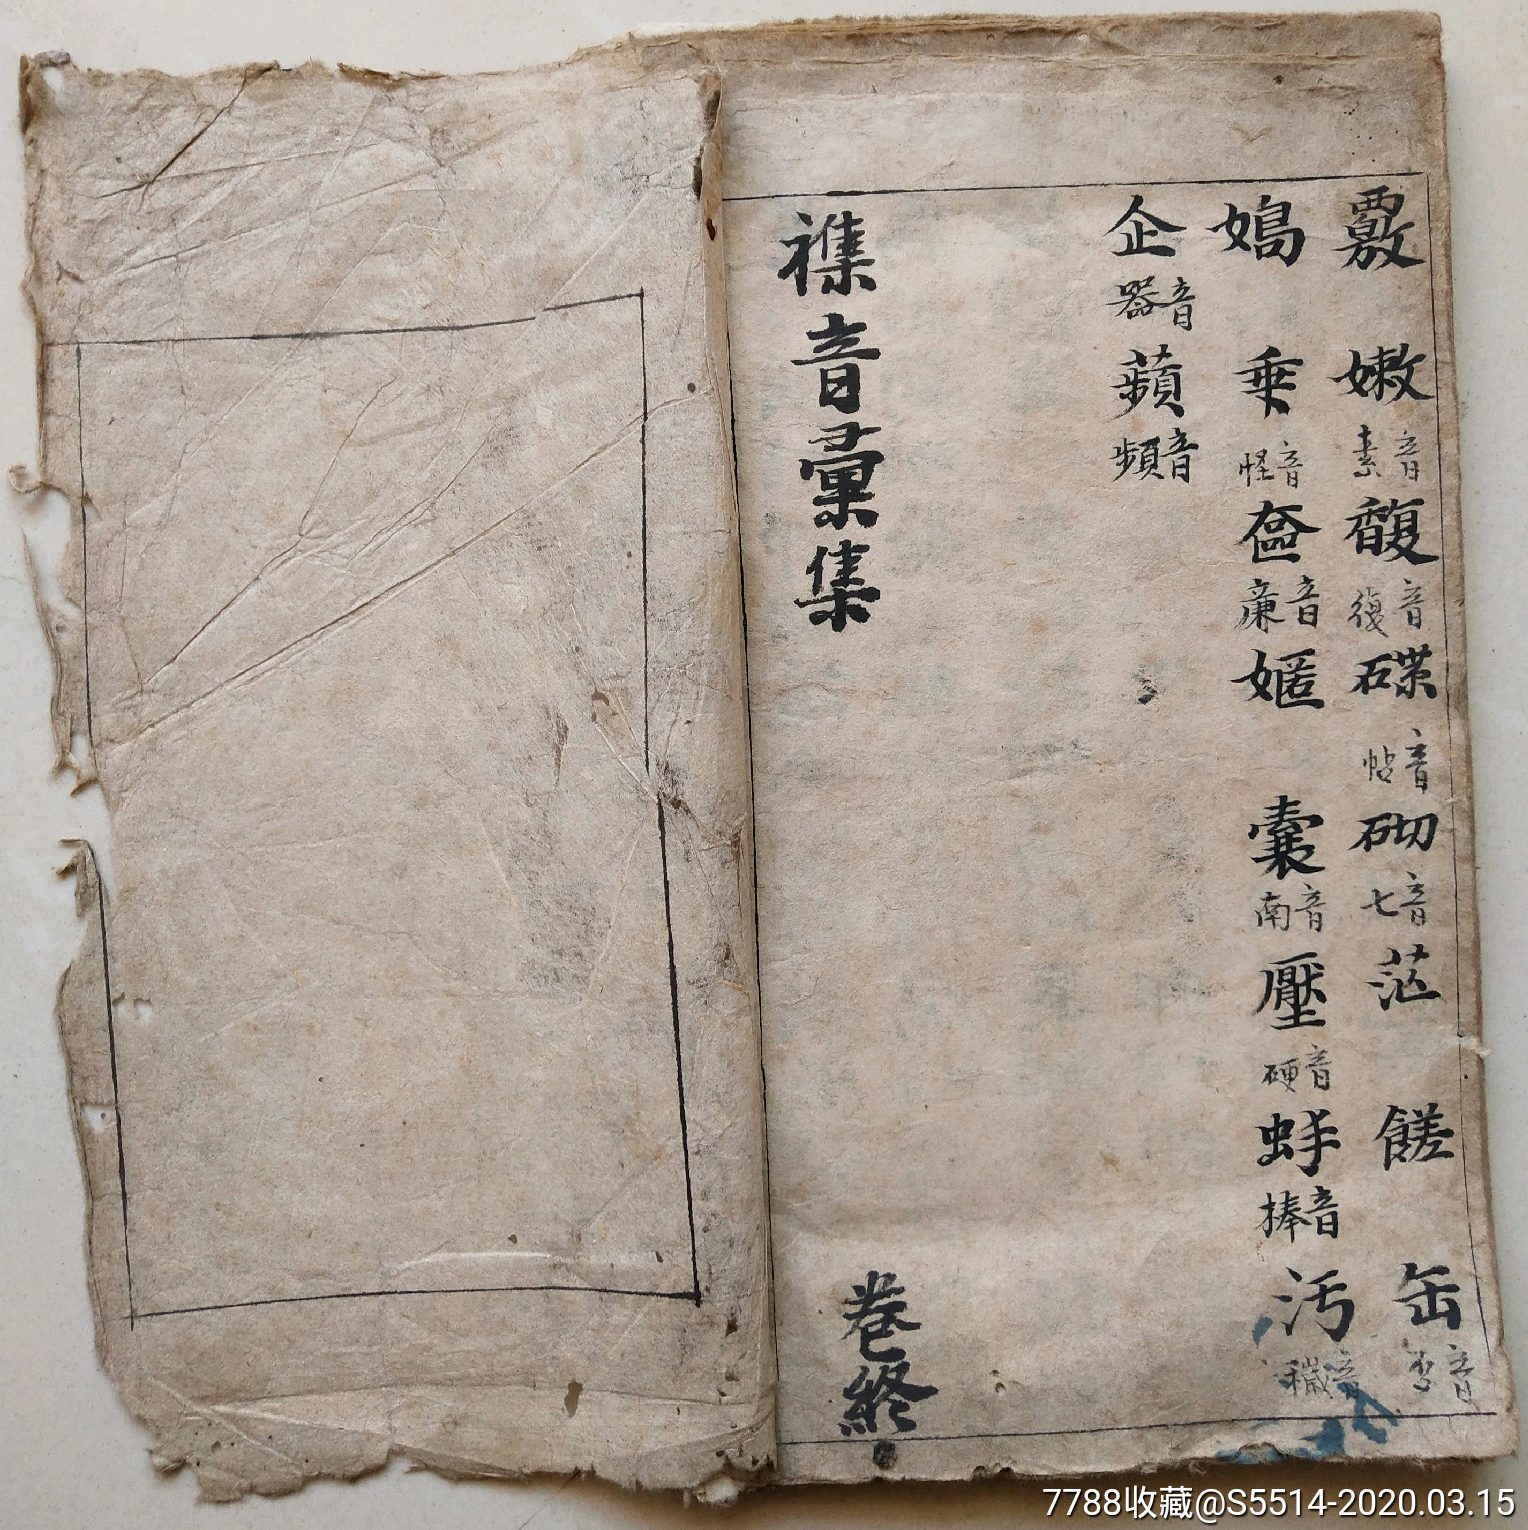 覈 嫩音素 馥音復 磼音帖 砌音七 茫 饈 缶音否
嫣 乗音怪 奩音廉 嫟 囊音南 壓音硬 蚌音捧 污音穢
企音器 蘋音頻
襍音彙集 卷終
7788收藏@S5514-2020.03.15